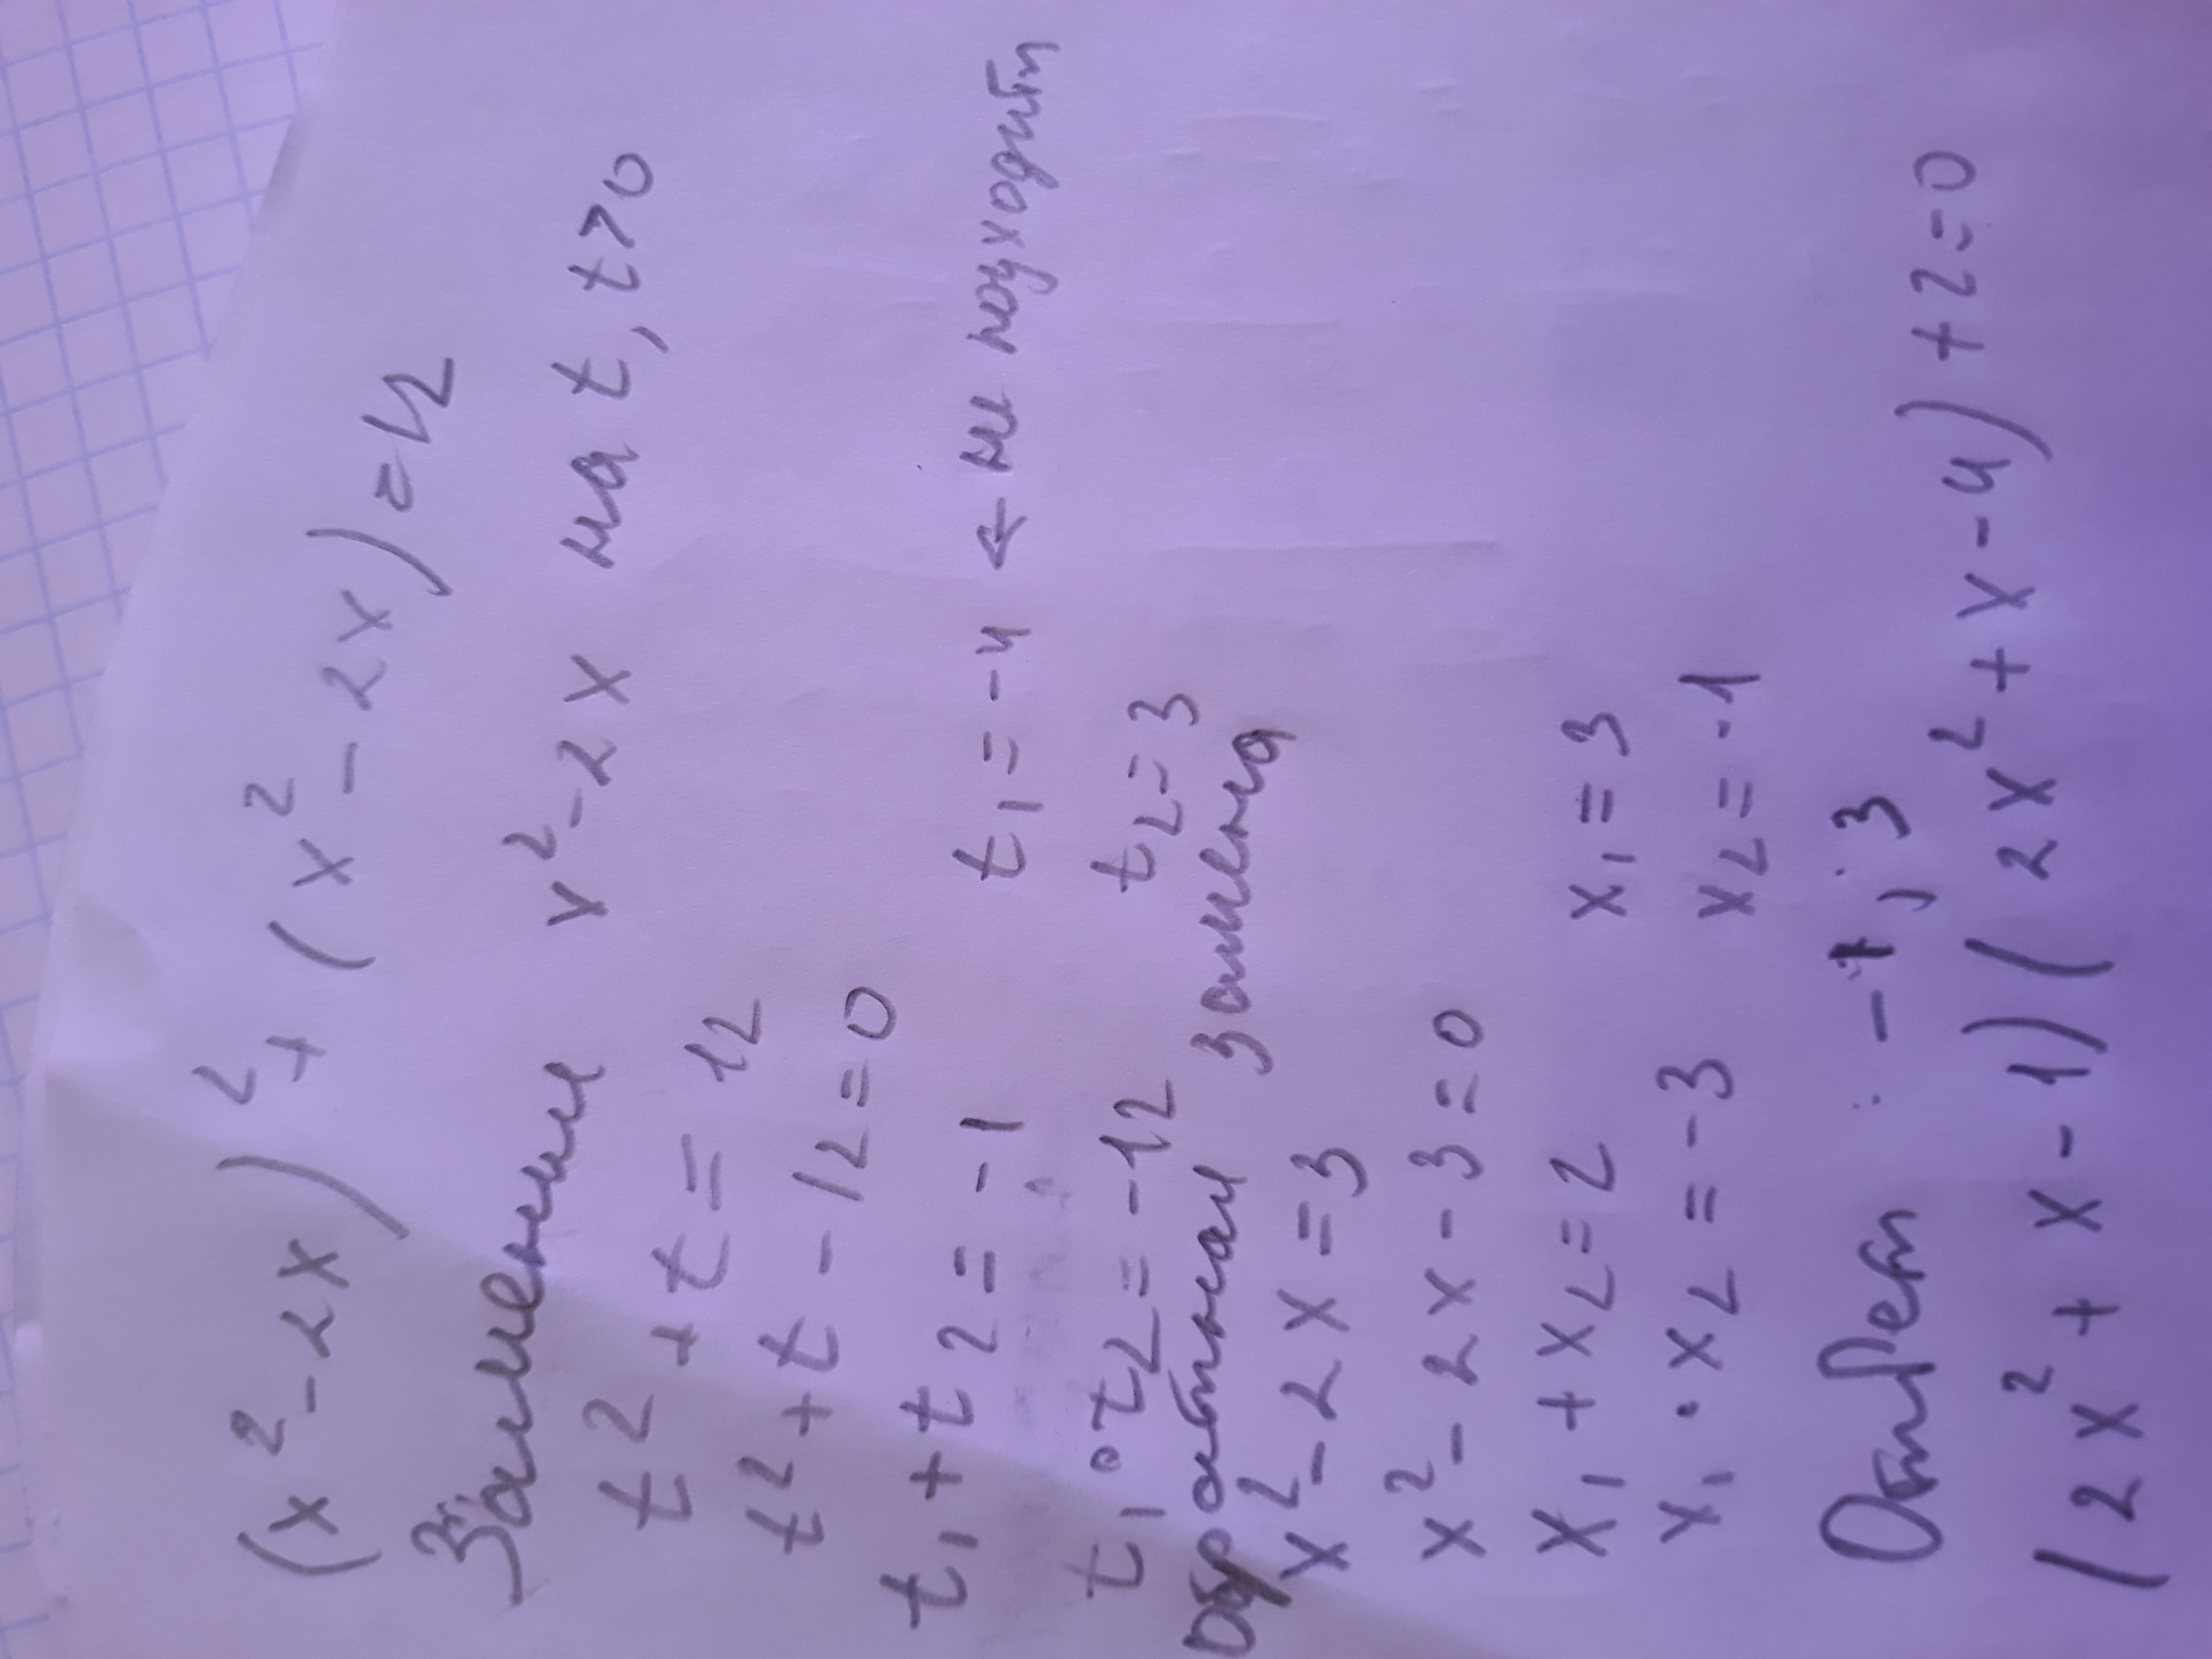 (x²-2x)²+(x²-2x)=12
Заменим x²-2x на t, t>0
t2+t=12
t²+t-12=0
t₁+t2=-1 t₁=-4 ← не подходит
t₁∘t₂=-12 t₂=3
Обратная замена
x²-2x=3
x²-2x-3=0
x₁+x₂=2 x₁=3
x₁·x₂=-3 x₂=-1
Ответ: -1; 3
(2x²+x-1)(2x²+x-4)+2=0